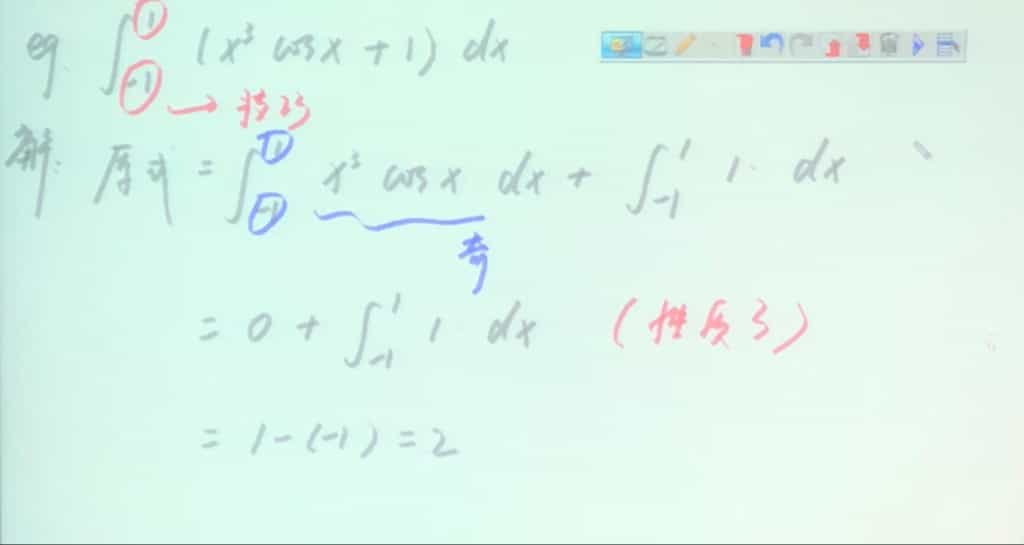 eg. ∫₋₁¹ (x³ cos x + 1) dx
→ 技巧
解: 原式 = ∫₋₁¹ x³ cos x dx + ∫₋₁¹ 1· dx
奇
= 0 + ∫₋₁¹ 1· dx (性质3)
= 1-(-1) = 2